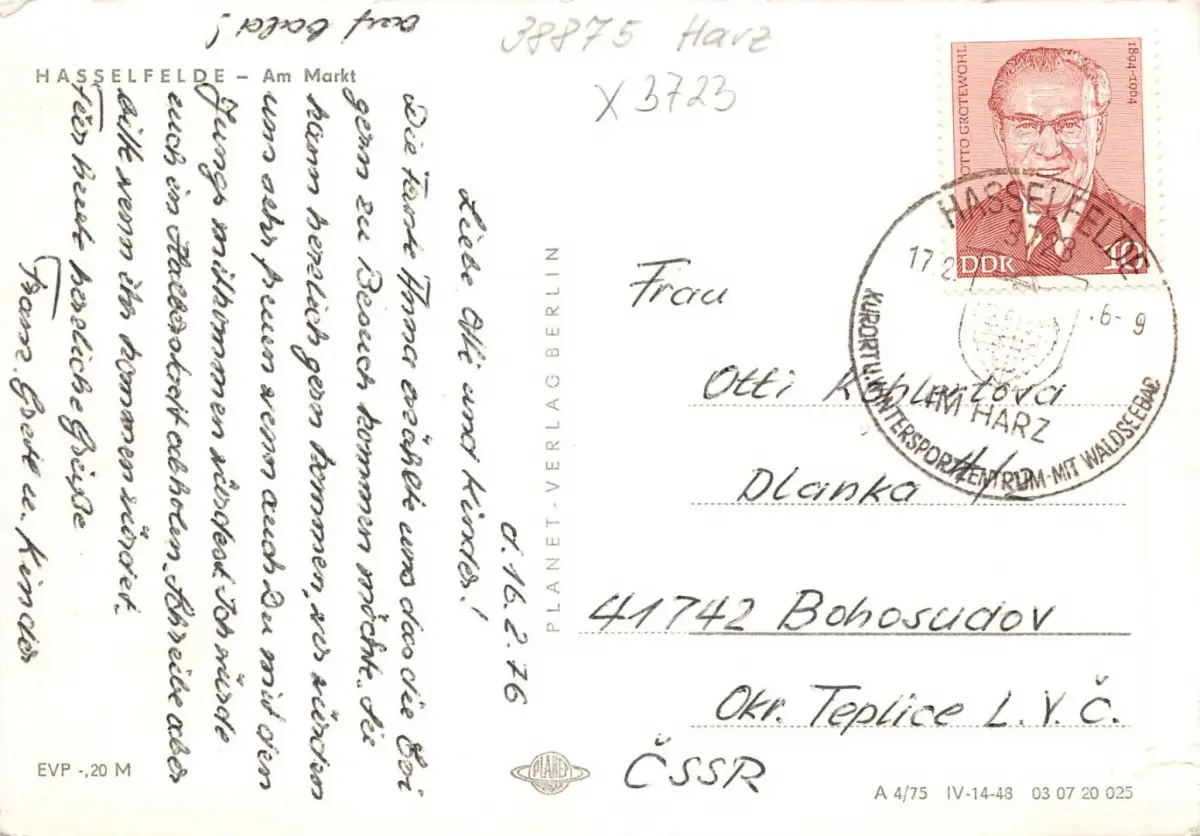 HASSELFELDE – Am Markt
d. 16.2.76
Liebe Otti und Kinder!
Die Tante Anna erzählt uns das die Evi
gern zu Besuch kommen möchte. Sie
kann herzlich gern kommen, wir würden
uns sehr freuen wenn auch Du mit den
Jungs mitkommen würdest. Ich würde
euch in Halberstadt abholen. Schreibe aber
bitte wenn ihr kommen würdet.
Für heute herzliche Grüße
Fam. Gretl u. Kinder
auf bald!
EVP -,20 M
PLANET-VERLAG BERLIN
PLANET
38875 Harz
X 3723
OTTO GROTEWOHL
1894-1964
DDR
10
HASSELFELDE
3723
17.2
.6-9
IM HARZ
KURORT U. WINTERSPORTZENTRUM-MIT WALDSEEBAD
Frau
Otti
Dlanka
41742 Bohosudov
Okr. Teplice L.V.Č.
ČSSR
A 4/75 IV-14-48 03 07 20 025